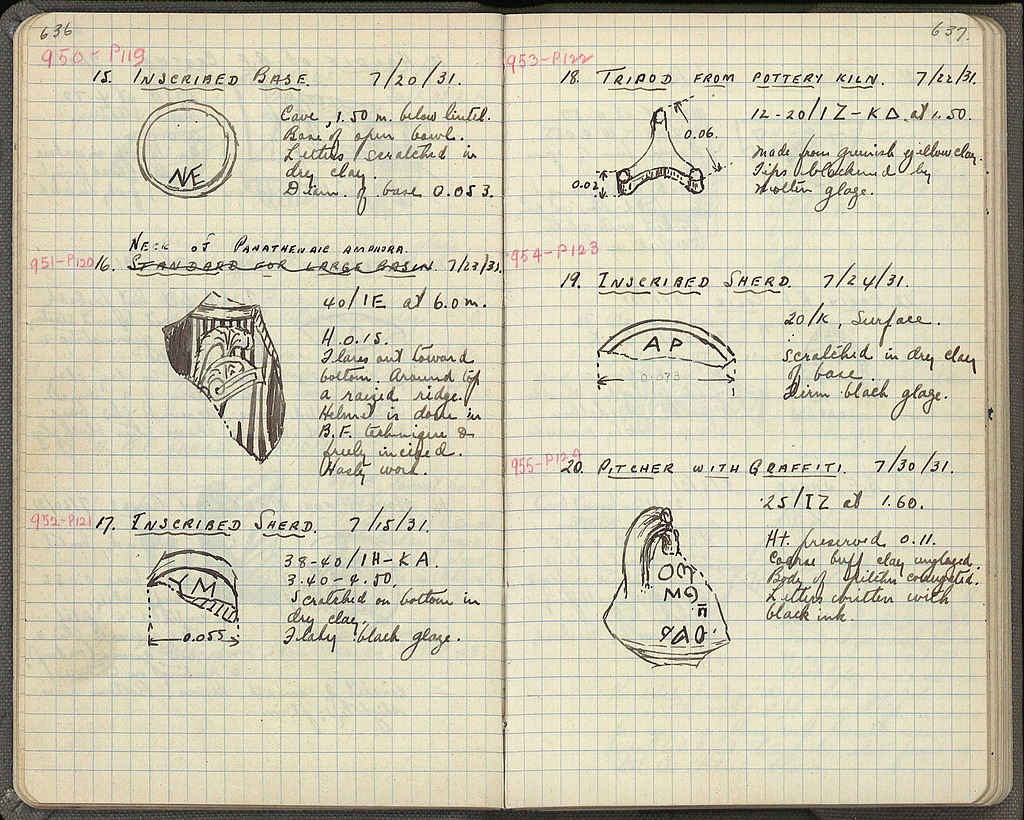 636
950-P119
15. INSCRIBED BASE. 7/20/31.
Cave, 1.50 m. below lintel.
Base of open bowl.
Letters scratched in
dry clay.
Diam. of base 0.053.
NE
NECK OF PANATHENAIC AMPHORA.
951-P120 16. STANDARD FOR LARGE BASIN. 7/23/31.
40/ΙΕ at 6.0 m.
H. 0.15.
Flares out toward
bottom. Around top
a raized ridge.
Helmet is done in
B.F. technique &
freely incised.
Hasty work.
952-P121 17. INSCRIBED SHERD. 7/15/31.
38-40/ΙΗ-ΚΑ.
3.40-4.50.
Scratched on bottom in
dry clay.
Flaky black glaze.
YM
0.055
637.
953-P122
18. TRIPOD FROM POTTERY KILN. 7/22/31.
12-20/ΙΖ-ΚΔ at 1.50.
Made from greenish yellow clay.
Tips blackened by
molten glaze.
0.06.
0.02
954-P123
19. INSCRIBED SHERD. 7/24/31.
20/Κ, Surface.
Scratched in dry clay
of base.
Firm black glaze.
AP
0.073
955-P124 20. PITCHER WITH GRAFFITI. 7/30/31.
25/ΙΖ at 1.60.
Ht. preserved 0.11.
Coarse buff clay unglazed.
Body of pitcher corrugated.
Letters written with
black ink.